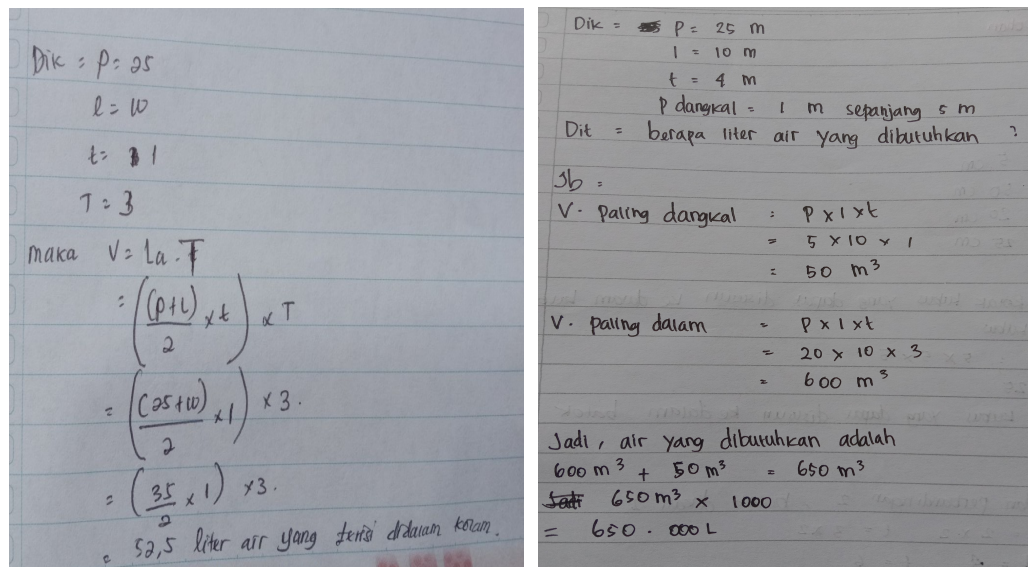 Dik = p = 25
l = 10
t = 1
T = 3
maka V = La . T
= ((p+l)/2 x t) x T
= ((25+10)/2 x 1) x 3.
= (35/2 x 1) x 3.
= 52,5 liter air yang terisi didalam kolam.
Dik = p = 25 m
l = 10 m
t = 4 m
p dangkal = 1 m sepanjang 5 m
Dit = berapa liter air yang dibutuhkan ?
Jb =
V. paling dangkal : p x l x t
= 5 x 10 x 1
= 50 m³
V. paling dalam = p x l x t
= 20 x 10 x 3
= 600 m³
Jadi, air yang dibutuhkan adalah
600 m³ + 50 m³ = 650 m³
Jadi 650 m³ x 1000
= 650.000 L